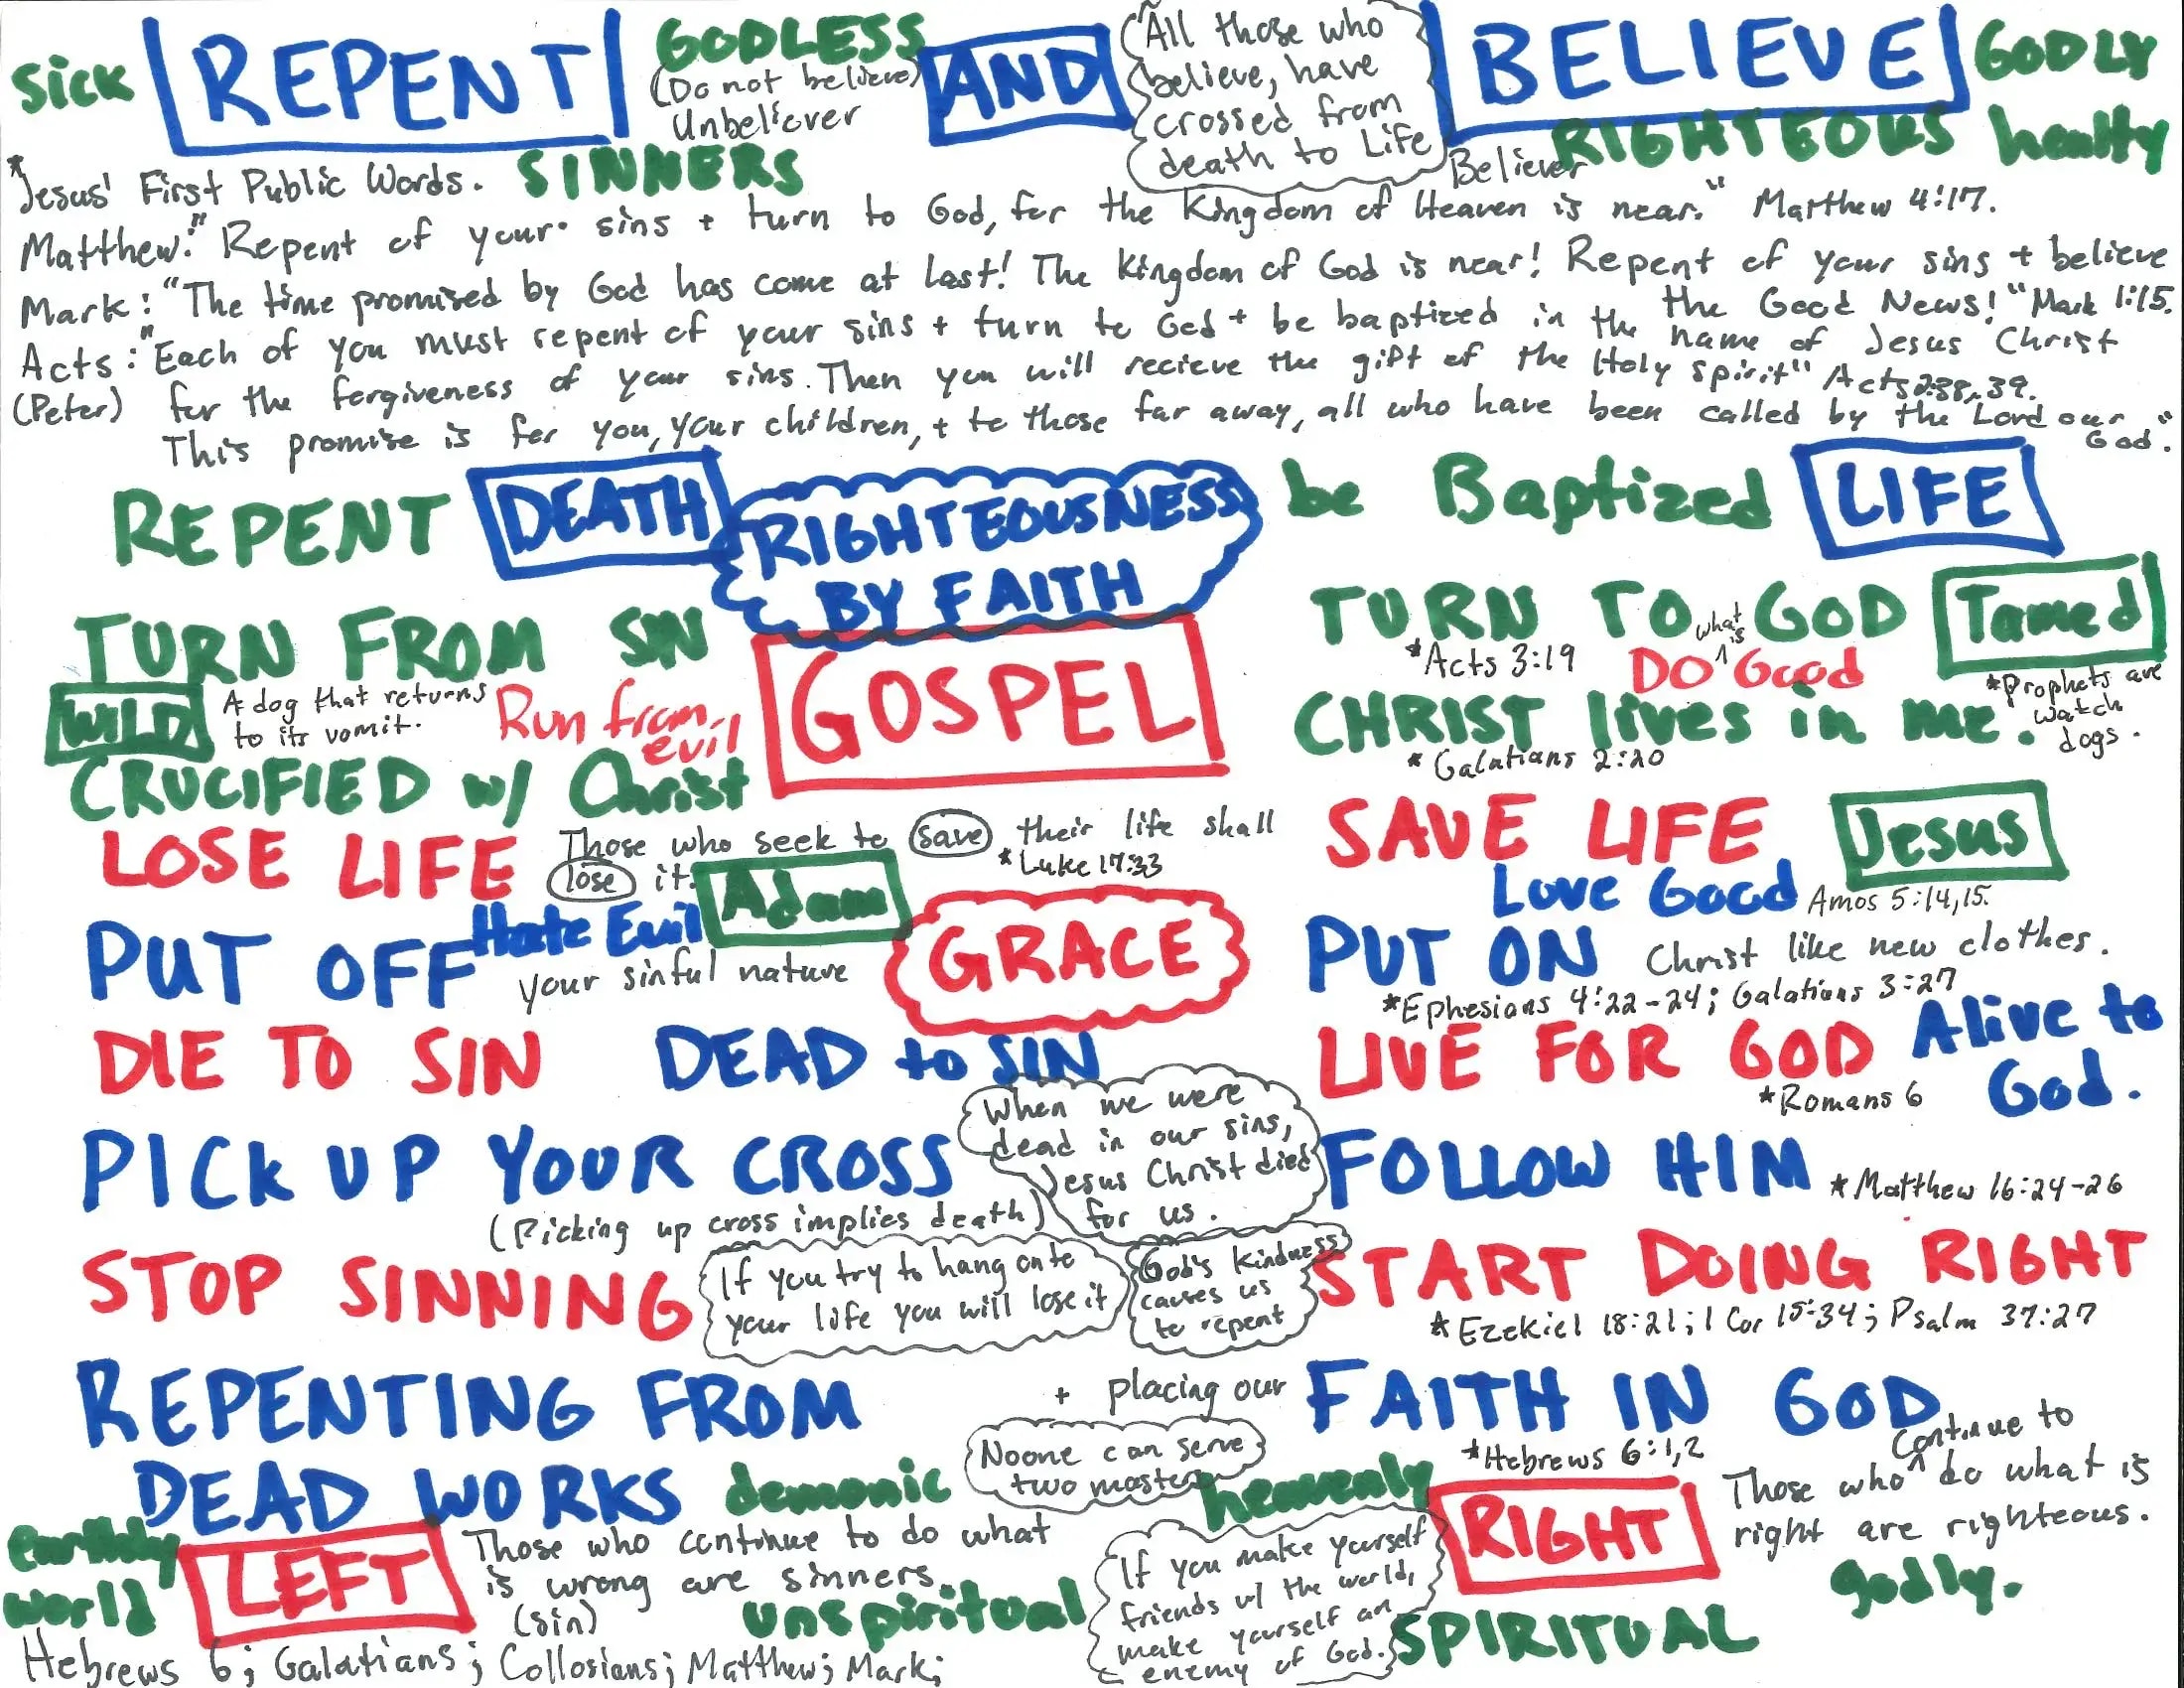 sick REPENT GODLESS AND All those who BELIEVE GODLY
(Do not believe) believe, have
Unbeliever crossed from RIGHTEOUS healty
*Jesus' First Public Words. SINNERS death to Life Believer
Matthew: "Repent of your sins + turn to God, for the Kingdom of Heaven is near." Matthew 4:17.
Mark: "The time promised by God has come at last! The Kingdom of God is near! Repent of your sins + believe
the Good News!" Mark 1:15.
Acts: "Each of you must repent of your sins + turn to God + be baptized in the name of Jesus Christ
(Peter) for the forgiveness of your sins. Then you will recieve the gift of the Holy Spirit" Acts 2:38,39.
This promise is for you, your children, + to those far away, all who have been called by the Lord our
God."
REPENT DEATH RIGHTEOUSNESS be Baptized LIFE
BY FAITH
TURN FROM SIN TURN TO GOD Tamed
*Acts 3:19 DO what is Good
WILD A dog that returns Run from GOSPEL *Prophets are
to its vomit. evil CHRIST lives in me. watch
dogs.
CRUCIFIED w/ Christ *Galatians 2:20
LOSE LIFE Those who seek to save their life shall SAVE LIFE Jesus
lose it. Adam *Luke 17:33
Love Good Amos 5:14,15.
PUT OFF Hate Evil GRACE PUT ON Christ like new clothes.
your sinful nature *Ephesians 4:22-24; Galatians 3:27
DIE TO SIN DEAD to SIN LIVE FOR GOD Alive to
*Romans 6 God.
When we were
dead in our sins,
PICK UP YOUR CROSS Jesus Christ died FOLLOW HIM *Matthew 16:24-26
(Picking up cross implies death) for us.
STOP SINNING If you try to hang onto God's kindness START DOING RIGHT
your life you will lose it causes us
to repent *Ezekiel 18:21; 1 Cor 15:34; Psalm 37:27
REPENTING FROM + placing our FAITH IN GOD
*Hebrews 6:1,2
DEAD WORKS demonic Noone can serve
two masters heavenly
Continue to
Those who ^ do what is
right are righteous.
earthly LEFT Those who continue to do what RIGHT
world is wrong are sinners. godly.
(sin) unspiritual If you make yourself
friends w/ the world,
make yourself an
enemy of God. SPIRITUAL
Hebrews 6; Galatians; Collosians; Matthew; Mark;